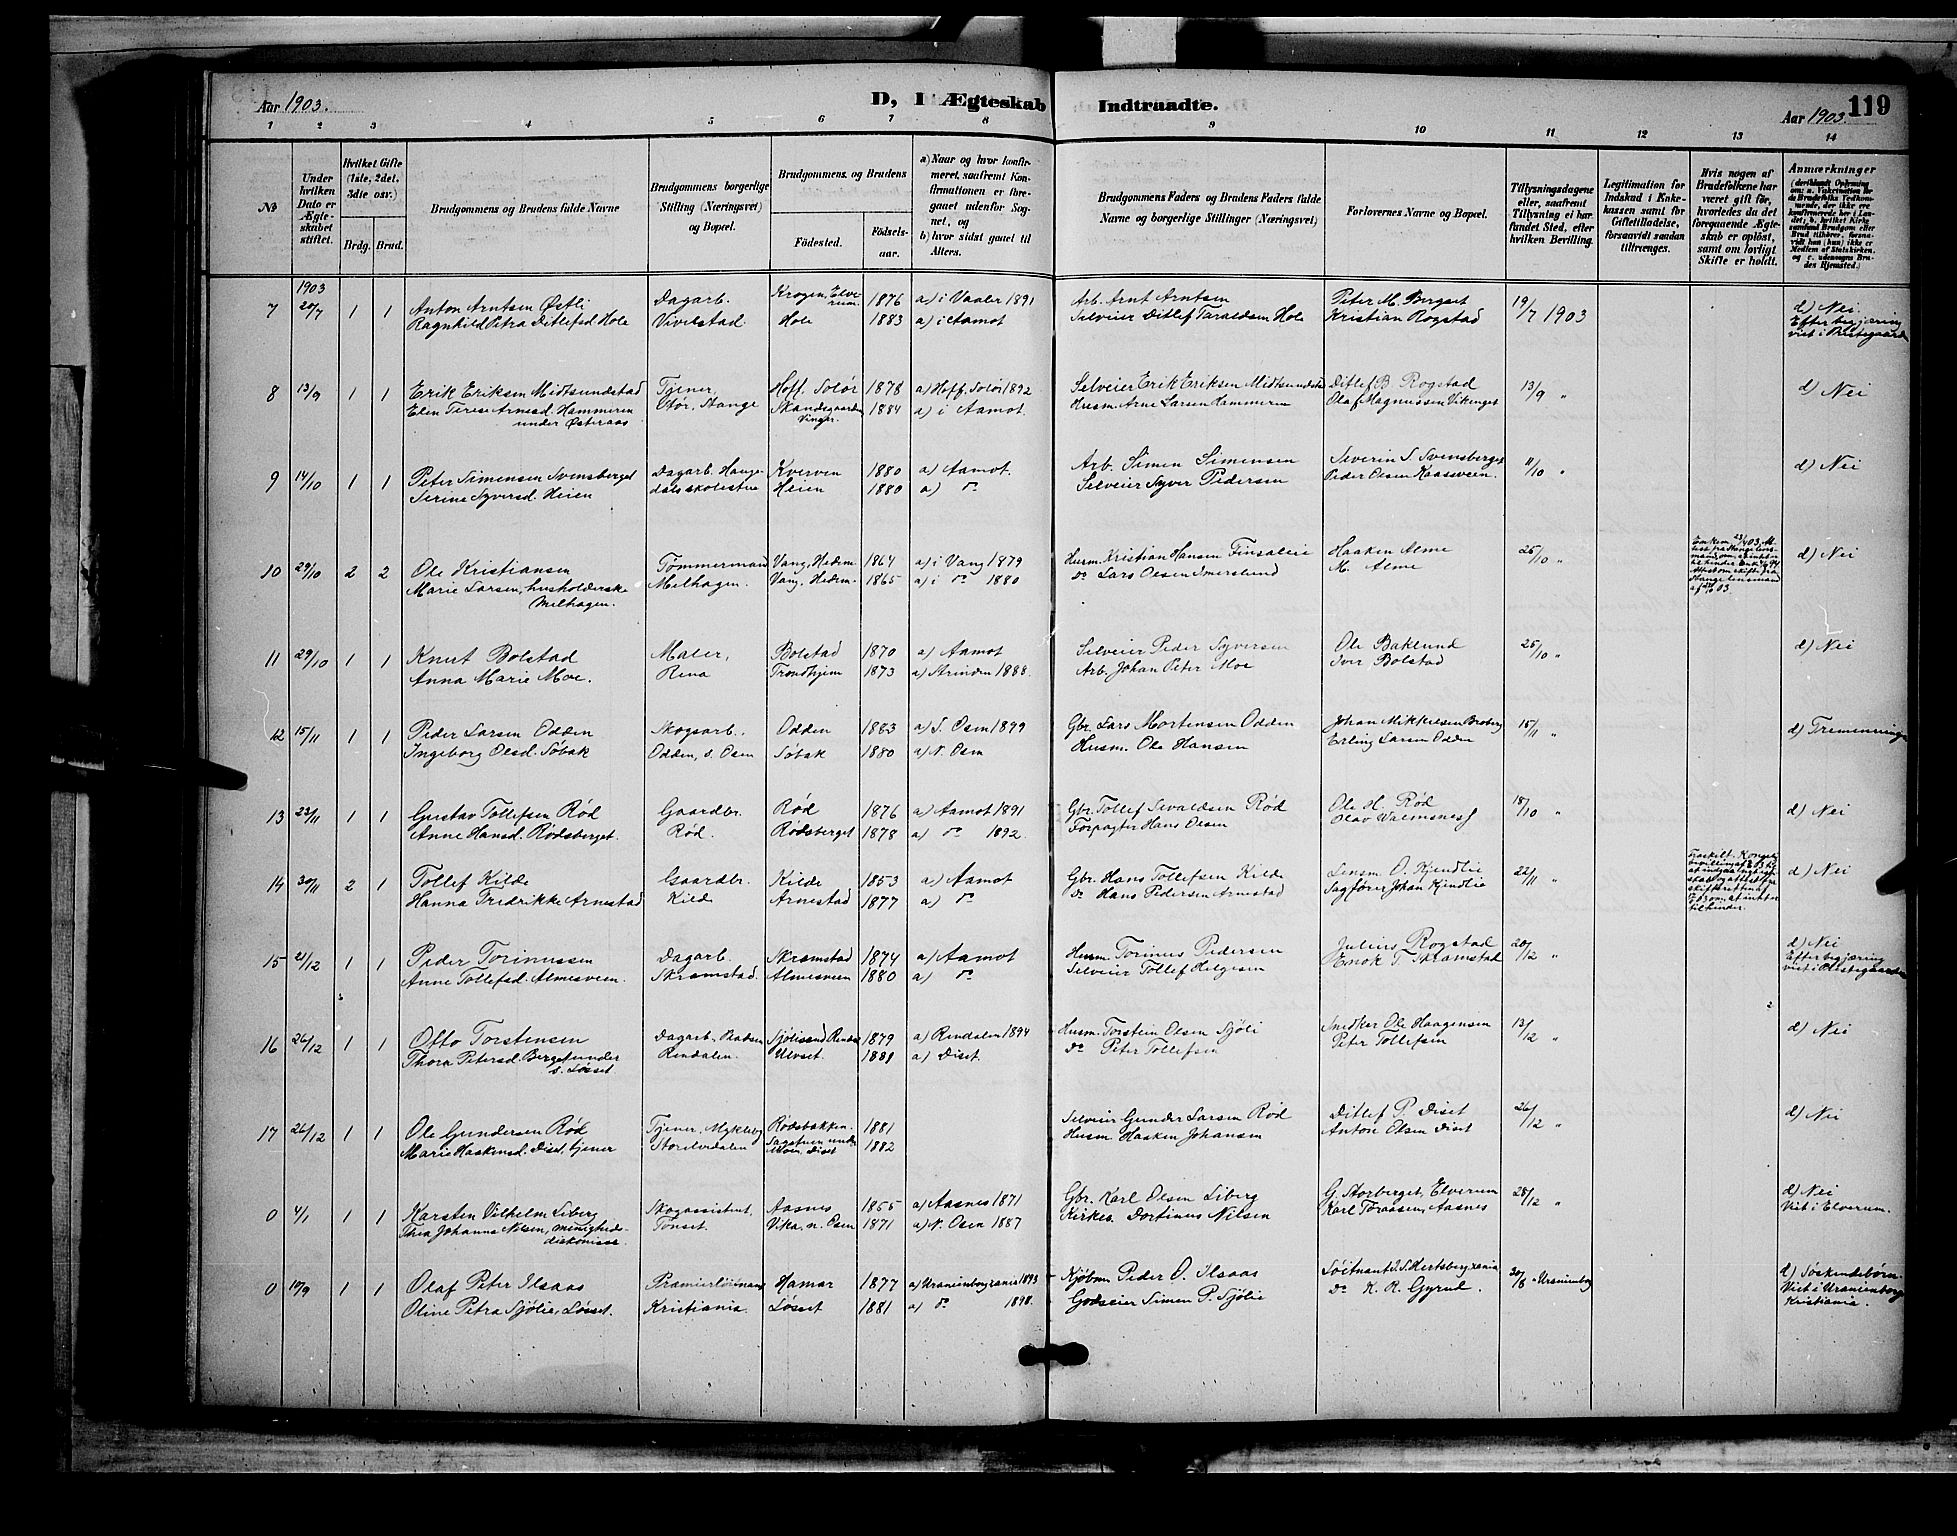 Aar 1903. D, I Ægteskab Indtraadte. Aar 1903. 119
1 2 3 4 5 6 7 8 9 10 11 12 13 14
No
Under hvilken Dato er Ægteskabet stiftet.
Hvilket Gifte (1ste, 2det, 3die osv.)
Brdg. Brud.
Brudgommens og Brudens fulde Navne
Brudgommens borgerlige Stilling (Næringsvei) og Bopæl.
Brudgommens og Brudens
Födested. Födselsaar.
a) Naar og hvor konfirmeret, saafremt Konfirmationen er foregaaet udenfor Sognet, og
b) hvor sidst gaaet til Alters.
Brudgommens Faders og Brudens Faders fulde Navne og borgerlige Stillinger (Næringsvei)
Forlovernes Navne og Bopæl.
Tillysningsdagene eller, saafremt Tillysning ei har fundet Sted, efter hvilken Bevilling.
Legitimation for Indskud i Enkekassen samt for Giftetilladelse, forsaavidt saadan tiltrænges.
Hvis nogen af Brudefolkene har været gift för, hvorledes da det foregaaende Ægteskab er oplöst, samt om lovligt Skifte er holdt.
Anmærkninger
1903
7 20/7 1 1 Anton Arntsen Østli Dagarb. Krogen, Elverum 1876 a) i Vaaler 1891 Arb. Arnt Arntsen Peter M. Bergset 19/7 1903 d) Nei.
Ragnhild Petra Ditlefsd Hole Vivelstad Hole 1883 a) i Aamot Selveier Ditlef Taraldsen Hole Kristian Rogstad Efter begjæring viet i Prestegaard
8 13/9 1 1 Erik Eriksen Midtsundstad Tjener, Hoff, Solør 1878 a) Hoff, Solør 1892 Selveier Erik Eriksen Midtsundstad Ditlef B. Rogstad 13/9 " d) Nei
Elen Terese Arnesd. Hammeren Stør, Stange Skandsgaarden 1884 a) i Aamot. Husm. Arne Larsen Hammeren Olaf Magnussen Vikenget
under Østeraas Vinger.
9 14/10 1 1 Peter Simensen Svensberget Dagarb. Hauge- Kverven 1880 a) Aamot. Arb. Simen Simensen Severin S. Svensberget 11/10 " d) Nei
Serine Syversd. Heien dalsskolestue Heien 1880 a) do Selveier Syver Pedersen Peder Olsen Kaasveen.
10 29/10 2 2 Ole Kristiansen Tømmermand Vang, Hedem. 1864 a) i Vang 1879 Husm. Kristian Hansen Finsaleie Haaken Alme 25/10 " d) Nei
Marie Larsen, husholderske Melhagen. Vang, Hedem. 1865 a) i do 1880 do Lars Olsen Imerslund M. Alme
Melhagen.
11 29/10 1 1 Knut Bolstad Maler, Bolstad 1870 a) Aamot Selveier Peder Syversen Ole Baklund 25/10 " d) Nei
Anna Marie Moe. Rena Trondhjem 1873 a) Strinden 1888. Arb. Johan Peter Moe Iver Bolstad
12 15/11 1 1 Peder Larsen Odden Skogsarb. Odden 1883 a) S. Osen 1899 Gbr. Lars Mortensen Odden Johan Mikkelsen Broberg 15/11 " d) Tremenninge
Ingeborg Olesd. Søbak Odden, s. Osen Søbak 1880 a) N. Osen Husm. Ole Hansen Erling Larsen Odden
13 23/11 1 1 Gustav Tollefsen Rød Gaardbr. Rød 1876 a) Aamot 1891 Gbr. Tollef Sevaldsen Rød Ole H. Rød 18/10 " d) Nei
Anne Hansd. Rødsberget. Rød. Rødsberget 1878 a) do 1892. Forpagter Hans Olsen Olav
14 30/11 2 1 Tollef Kilde Gaardbr. Kilde 1853 a) Aamot Gbr. Hans Tollefsen Kilde Lensm. O. Kjendlie 22/11 " d) Nei
Hanna Fredrikke Arnestad Kilde Arnestad 1877 a) do do Hans Pedersen Arnestad Sagfører Johan Kjendlie
15 21/12 1 1 Peder Torinussen Dagarb. Skramstad 1874 a) Aamot Husm. Torinus Pedersen Julius Rogstad 20/12 " d) Nei
Anne Tollefsd. Almesveen. Skramstad Almesveen 1880 a) do Selveier Tollef Helgesen Enok T. Skramstad Efter begjæring viet i Prestegaarden
16 26/12 1 1 Otto Torstensen Dagarb. Sjølisand Rendal 1879 a) Rendalen 1894 Husm. Torstein Olsen Sjøli Snedker Ole Haagensen 13/12 " d) Nei
Thora Petersd. Berget under Rendalen. Ulvset. 1881 a) Diset. do Peter Tollefsen Peter Tollefsen
s. Løsset
17 26/12 1 1 Ole Gundersen Rød Tjener, Mykleby Rødsbakken. 1881 Selveier Gunder Larsen Rød Ditlef P. Diset 26/12 " d) Nei
Marie Haakensd. Diset, tjener Storelvedalen Sagstuen under Moen, Diset 1882 Husm. Haaken Johansen Anton Olsen Diset
0 4/1 1 1 Karsten Vilhelm Liberg Skogassistent, Aasnes 1855 a) Aasnes 1871 Gbr. Karl Olsen Liberg G. Storberget, Elverum 28/12 " d) Nei
Thea Johanne Nilsen, menigheds- Tønset. Vika, n. Osen 1871 a) N. Osen 1887 Kirkes. Dortinus Nilsen Karl Toraasen, Aasnes Viet i Elverum.
diakonisse.
0 10/9 1 1 Olaf Peter Ilsaas Premierløitnant Hamar 1877 a) Uranienborg Xania 1893 Kjøbm. Peder O. Ilsaas 30/8 " Uranienborg d) Søskendebørn.
Oline Petra Sjølie, Løsset. Kristiania. Løsset 1881 a) do 1898. Godseier Simen P. Sjølie do K. R. Gyrud. Viet i Uranienborg Kristiania.